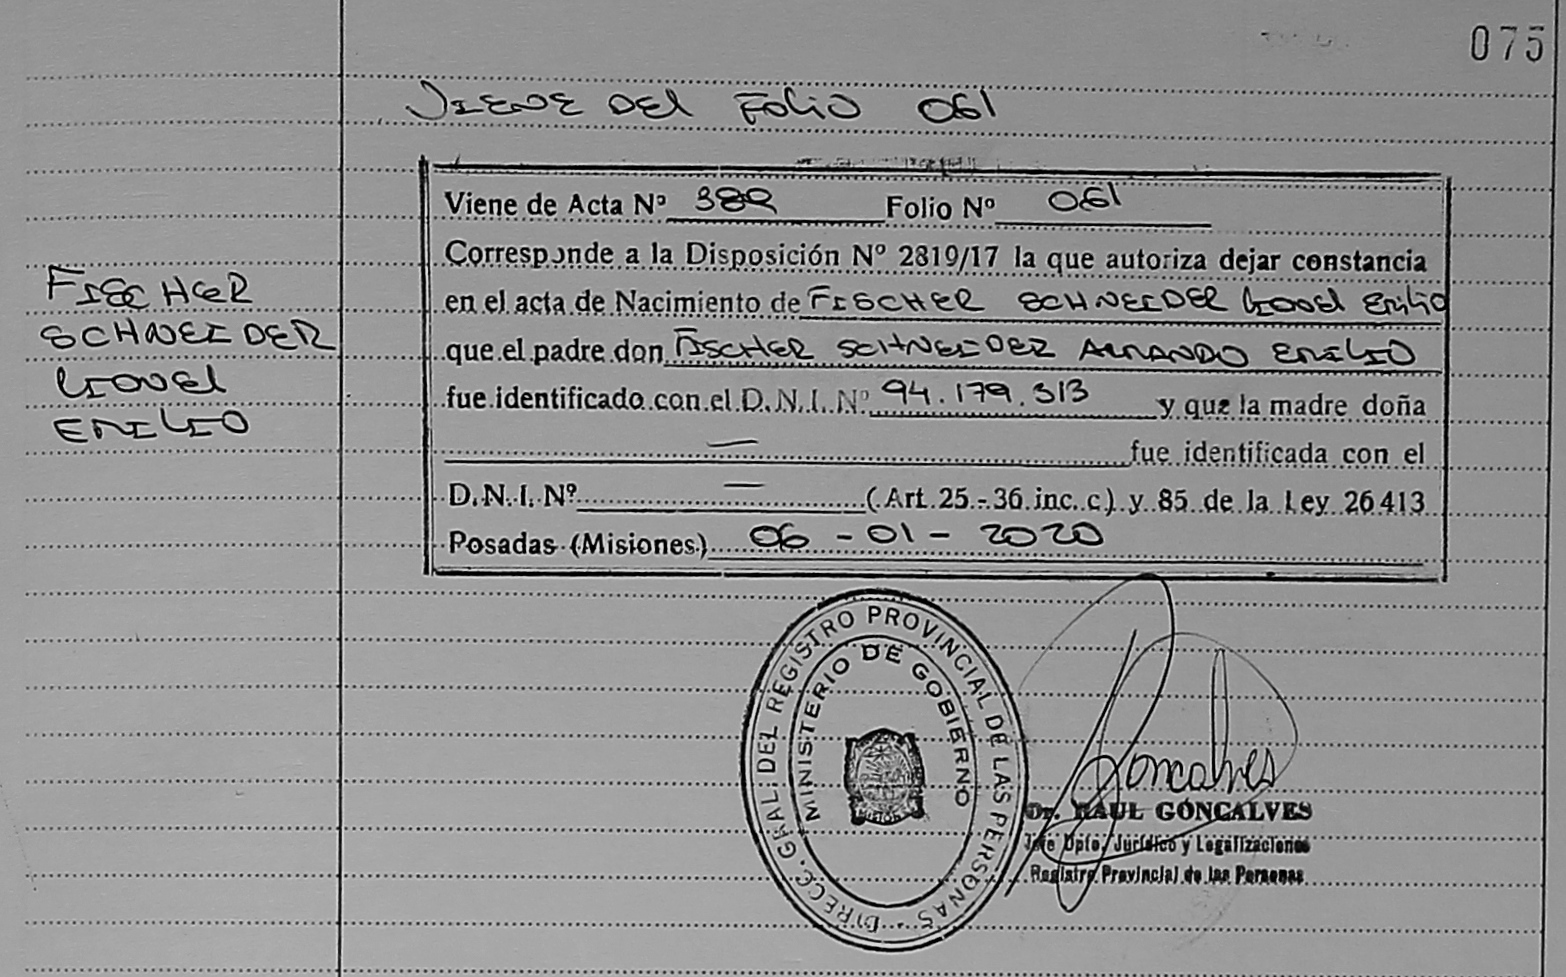 075
VIENE DEL FOLIO 061
Viene de Acta Nº 389 Folio Nº 061
Corresponde a la Disposición Nº 2819/17 la que autoriza dejar constancia
en el acta de Nacimiento de FISCHER SCHNEIDER Lionel Emilio
que el padre don FISCHER SCHNEIDER ARMANDO EMILIO
fue identificado con el D.N.I. Nº 94.179.313 y que la madre doña
— fue identificada con el
D.N.I. Nº — (Art. 25 - 36 inc. c) y 85 de la Ley 26413
Posadas (Misiones) 06 - 01 - 2020
FISCHER
SCHNEIDER
Lionel
EMILIO
DIRECC. GRAL. DEL REGISTRO PROVINCIAL DE LAS PERSONAS
MINISTERIO DE GOBIERNO
MISIONES
Goncalves
Dr. RAUL GONCALVES
Jefe Dpto. Jurídico y Legalizaciones
Registro Provincial de las Personas